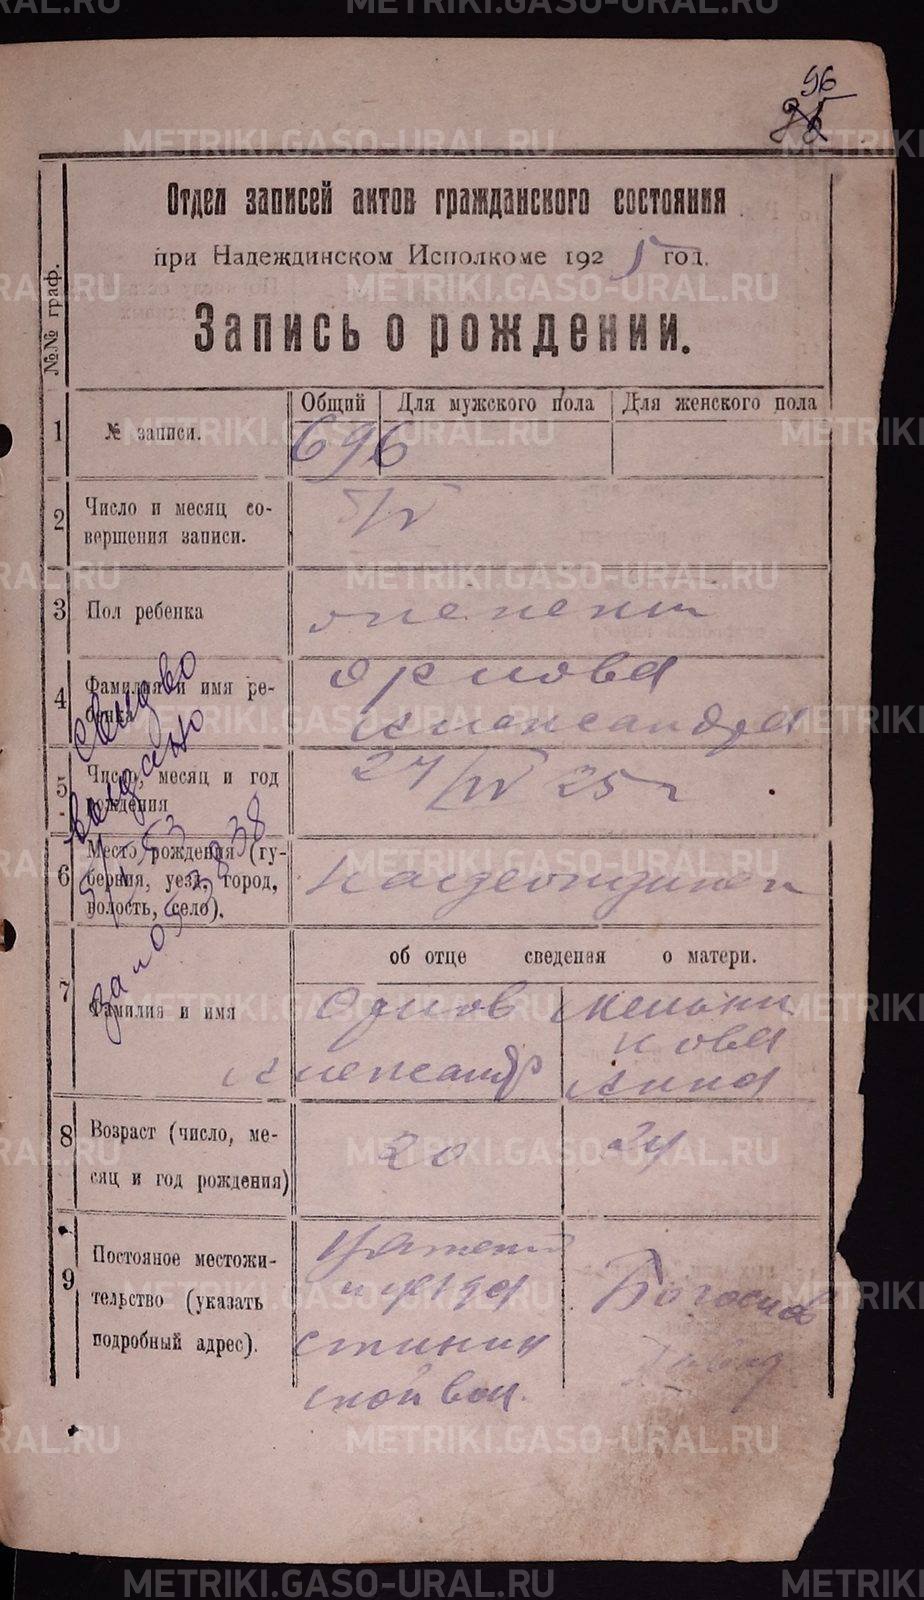 96
Отдел записей актов гражданского состояния
при Надеждинском Исполкоме 1925 год.
Запись о рождении.
№№ граф.
Общий Для мужского пола Для женского пола
1 № записи. 696
2 Число и месяц совершения записи. 5/V
3 Пол ребенка
4 Фамилия и имя ребенка Орлова
Александра
5 Число, месяц и год рождения 27/IV 25 г
6 Место рождения (губерния, уезд, город, волость, село).
7 об отце сведения о матери.
Фамилия и имя Орлов Мельни
кова
Александр Анна
8 Возраст (число, месяц и год рождения) 20 24
9 Постояное местожительство (указать подробный адрес).
уезда
ской вол. Богослов
METRIKI.GASO-URAL.RU